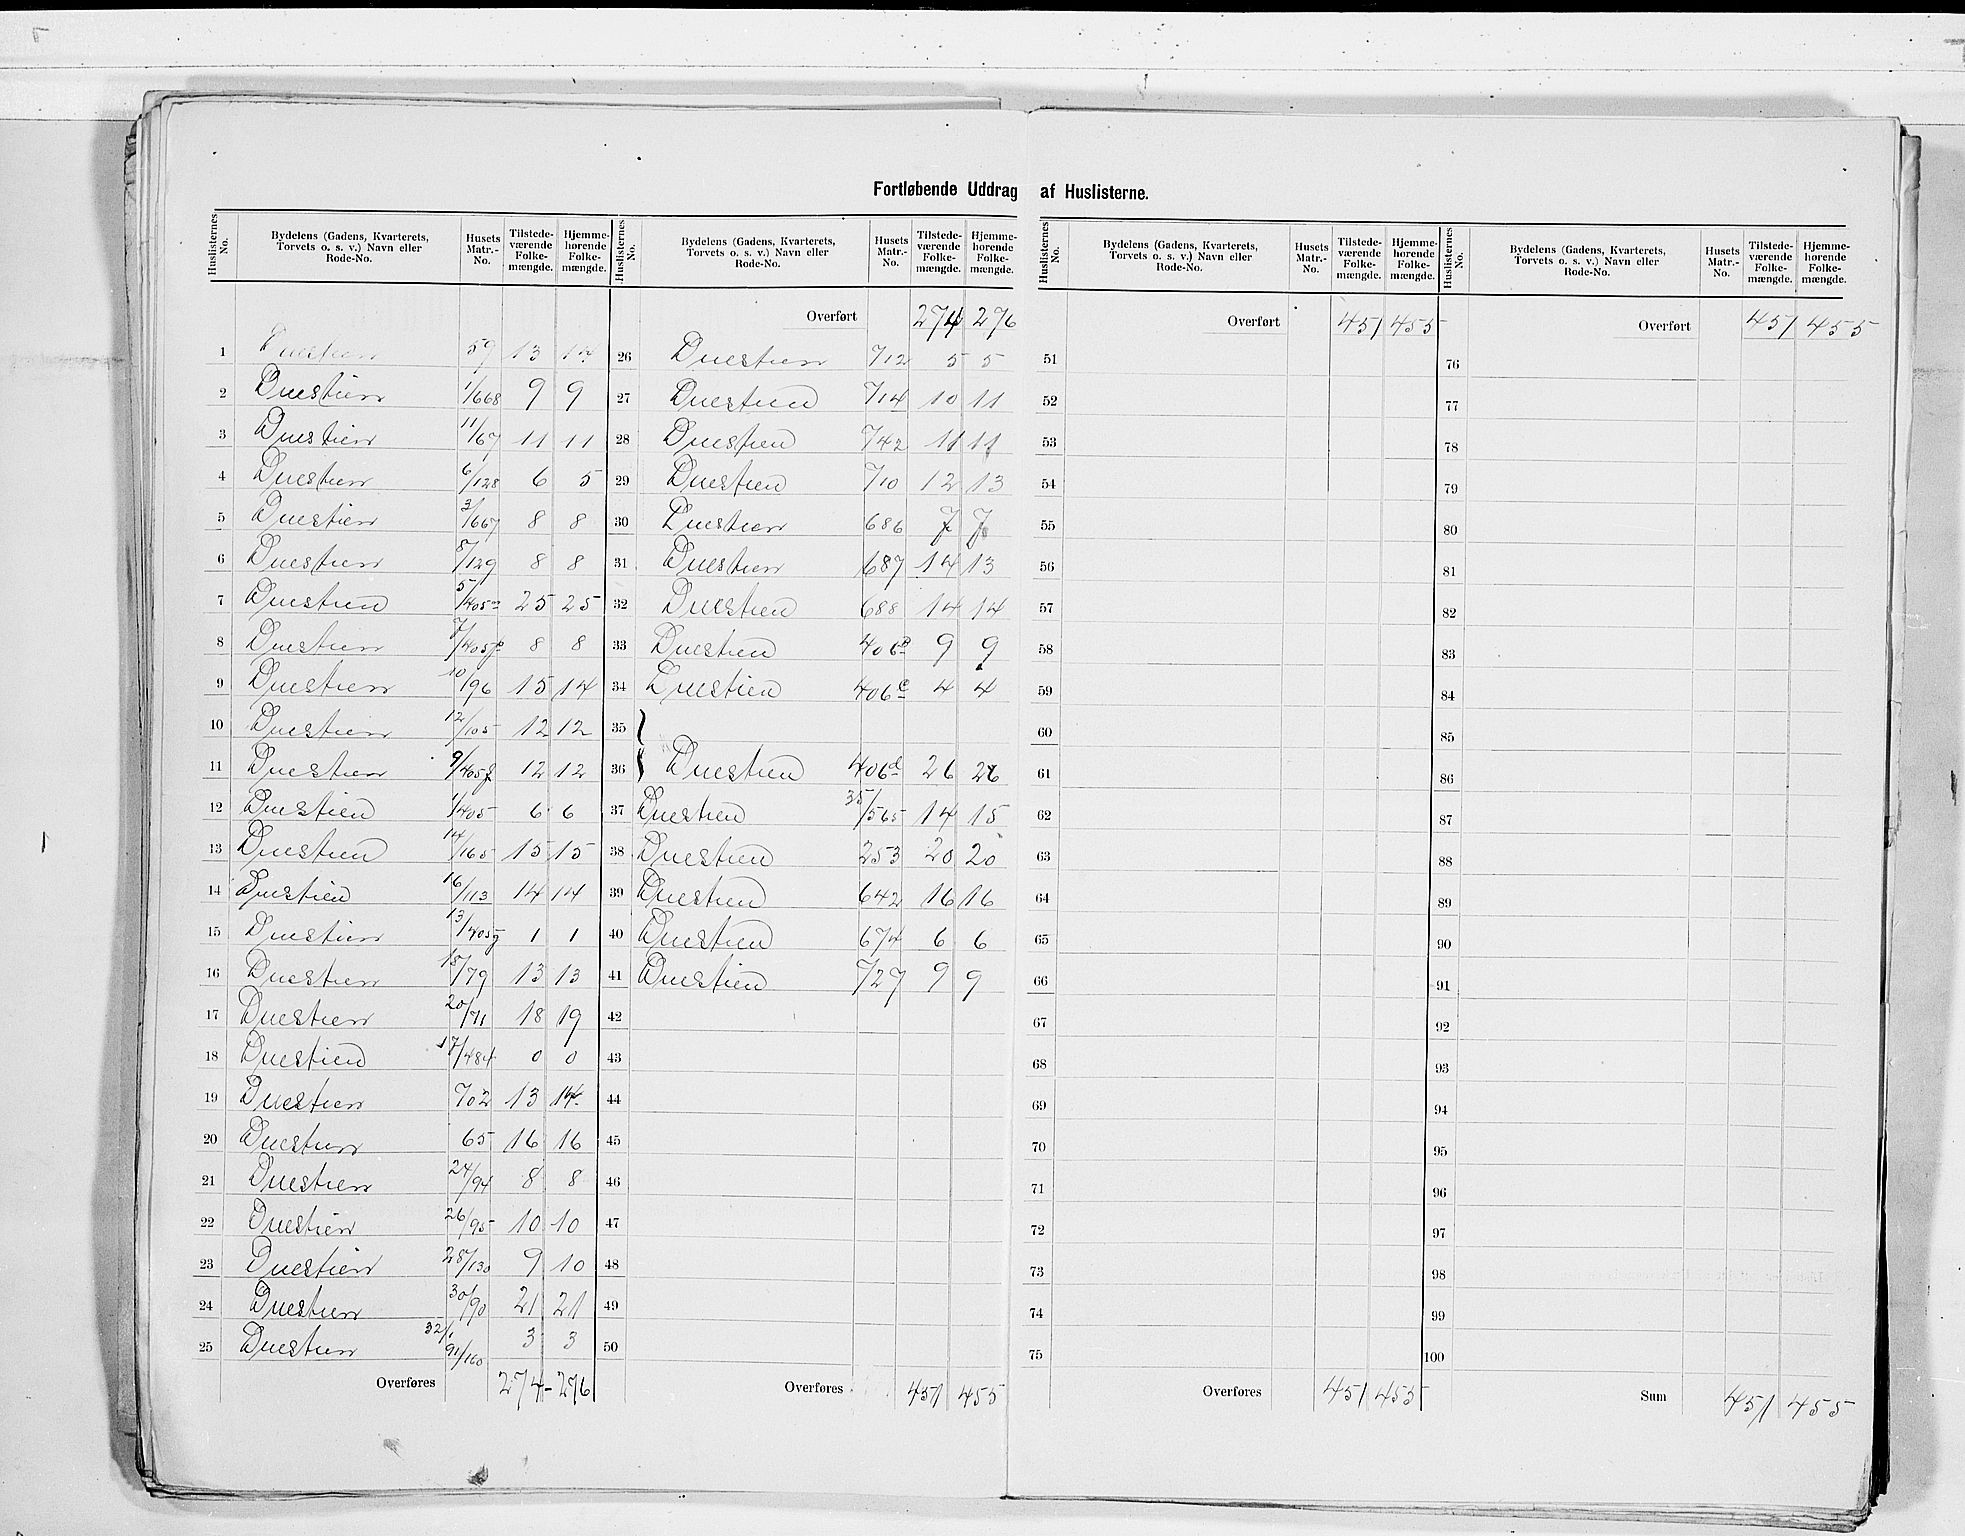 Fortløbende Uddrag af Huslisterne.
Huslisternes No. | Bydelens (Gadens, Kvarterets, Torvets o. s. v.) Navn eller Rode-No. | Husets Matr.-No. | Tilstedeværende Folkemængde. | Hjemmehørende Folkemængde.
1 Duestien 59 13 14
2 Duestien 1/668 9 9
3 Duestien 11/67 11 11
4 Duestien 6/128 6 5
5 Duestien 3/667 8 8
6 Duestien 8/129 8 8
7 Duestien 5/405 25 25
8 Duestien 7/405 8 8
9 Duestien 10/96 15 14
10 Duestien 12/105 12 12
11 Duestien 9/405f 12 12
12 Duestien 1/405 6 6
13 Duestien 14/165 15 15
14 Duestien 16/113 14 14
15 Duestien 13/405g 1 1
16 Duestien 15/79 13 13
17 Duestien 20/71 18 19
18 Duestien 17/484 0 0
19 Duestien 702 13 14
20 Duestien 65 16 16
21 Duestien 24/94 8 8
22 Duestien 26/95 10 10
23 Duestien 28/130 9 10
24 Duestien 30/90 21 21
25 Duestien 32/91/160 3 3
Overføres 274 - 276
Huslisternes No. | Bydelens (Gadens, Kvarterets, Torvets o. s. v.) Navn eller Rode-No. | Husets Matr.-No. | Tilstedeværende Folkemængde. | Hjemmehørende Folkemængde.
Overført 274 276
26 Duestien 712 5 5
27 Duestien 714 10 11
28 Duestien 742 11 11
29 Duestien 710 12 13
30 Duestien 686 7 7
31 Duestien 687 14 13
32 Duestien 688 14 14
33 Duestien 406b 9 9
34 Duestien 406c 4 4
35
36 Duestien 406d 26 26
37 Duestien 35/565 14 15
38 Duestien 253 20 20
39 Duestien 642 16 16
40 Duestien 674 6 6
41 Duestien 727 9 9
42
43
44
45
46
47
48
49
50
Overføres 451 455
Huslisternes No. | Bydelens (Gadens, Kvarterets, Torvets o. s. v.) Navn eller Rode-No. | Husets Matr.-No. | Tilstedeværende Folkemængde. | Hjemmehørende Folkemængde.
Overført 451 455
51
52
53
54
55
56
57
58
59
60
61
62
63
64
65
66
67
68
69
70
71
72
73
74
75
Overføres 451 455
Huslisternes No. | Bydelens (Gadens, Kvarterets, Torvets o. s. v.) Navn eller Rode-No. | Husets Matr.-No. | Tilstedeværende Folkemængde. | Hjemmehørende Folkemængde.
Overført 451 455
76
77
78
79
80
81
82
83
84
85
86
87
88
89
90
91
92
93
94
95
96
97
98
99
100
Sum 451 455